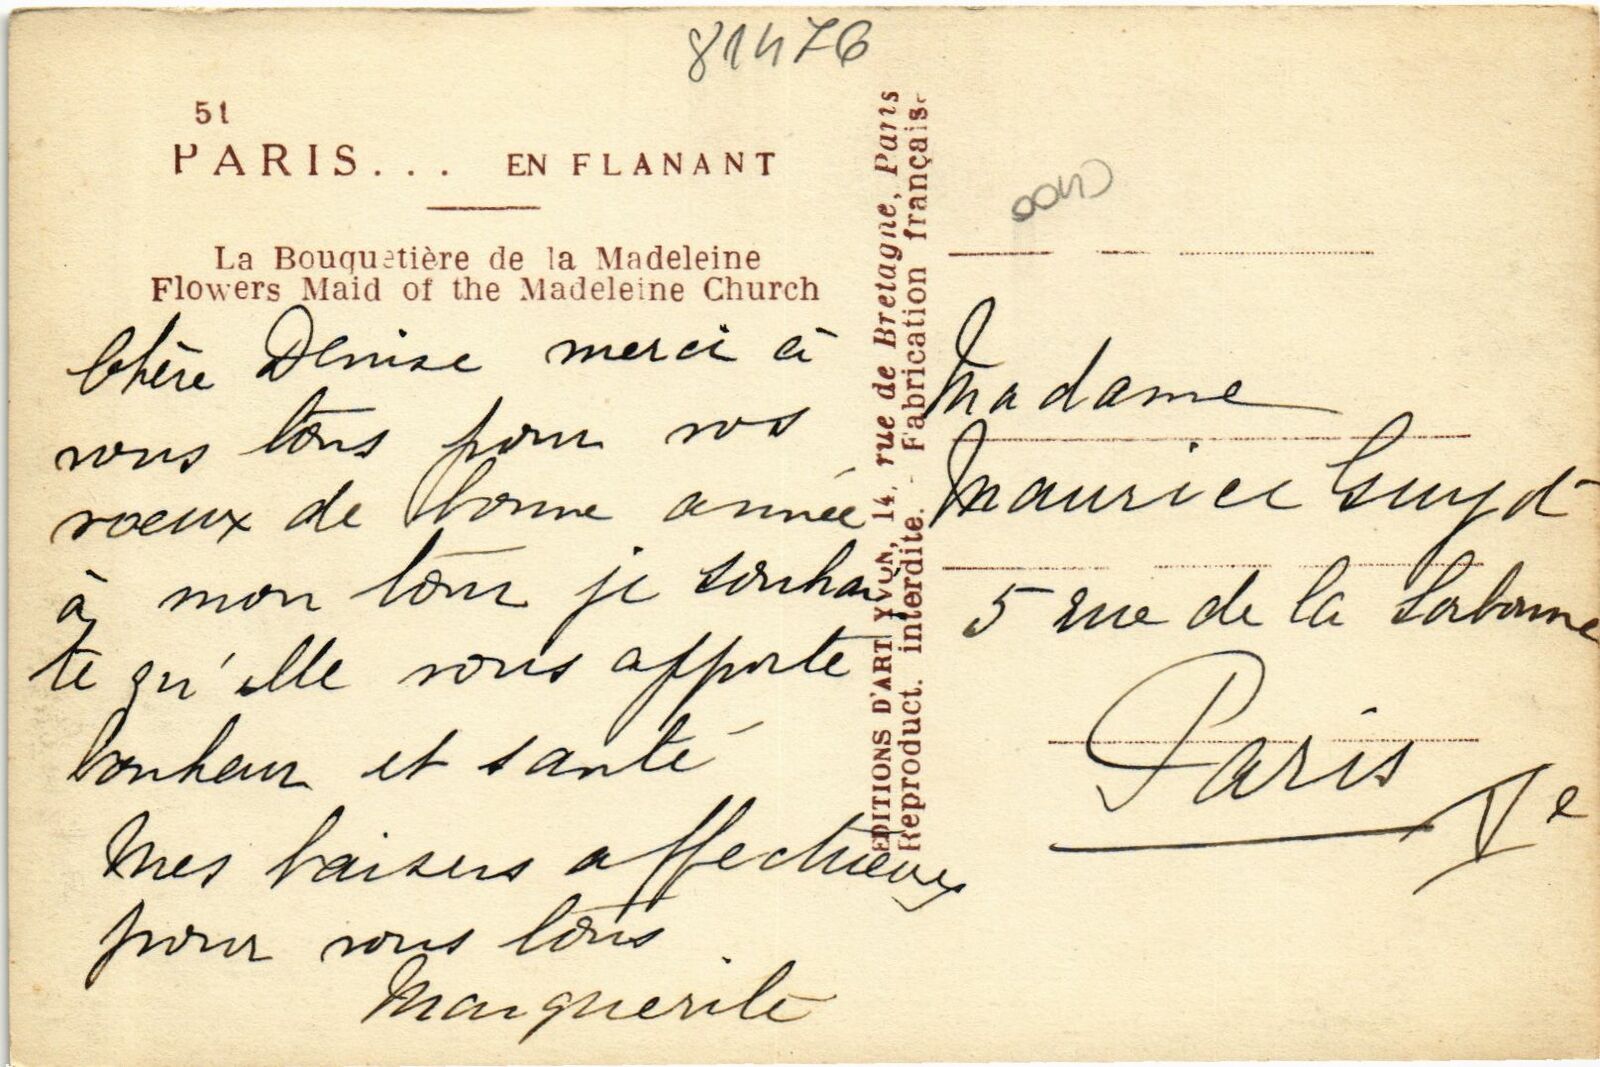 81476
51
PARIS... EN FLANANT
La Bouquetière de la Madeleine
Flowers Maid of the Madeleine Church
Chère Denise merci à
vous tous pour vos
voeux de bonne année
à mon tour je souhai
te qu'elle vous apporte
bonheur et santé
Mes baisers affectueux
pour vous tous
Marguerite
EDITIONS D'ART YVON, 14, rue de Bretagne, Paris
Reproduct. interdite. - Fabrication française
Madame
Maurice
5 rue de la Sorbonne
Paris Ve